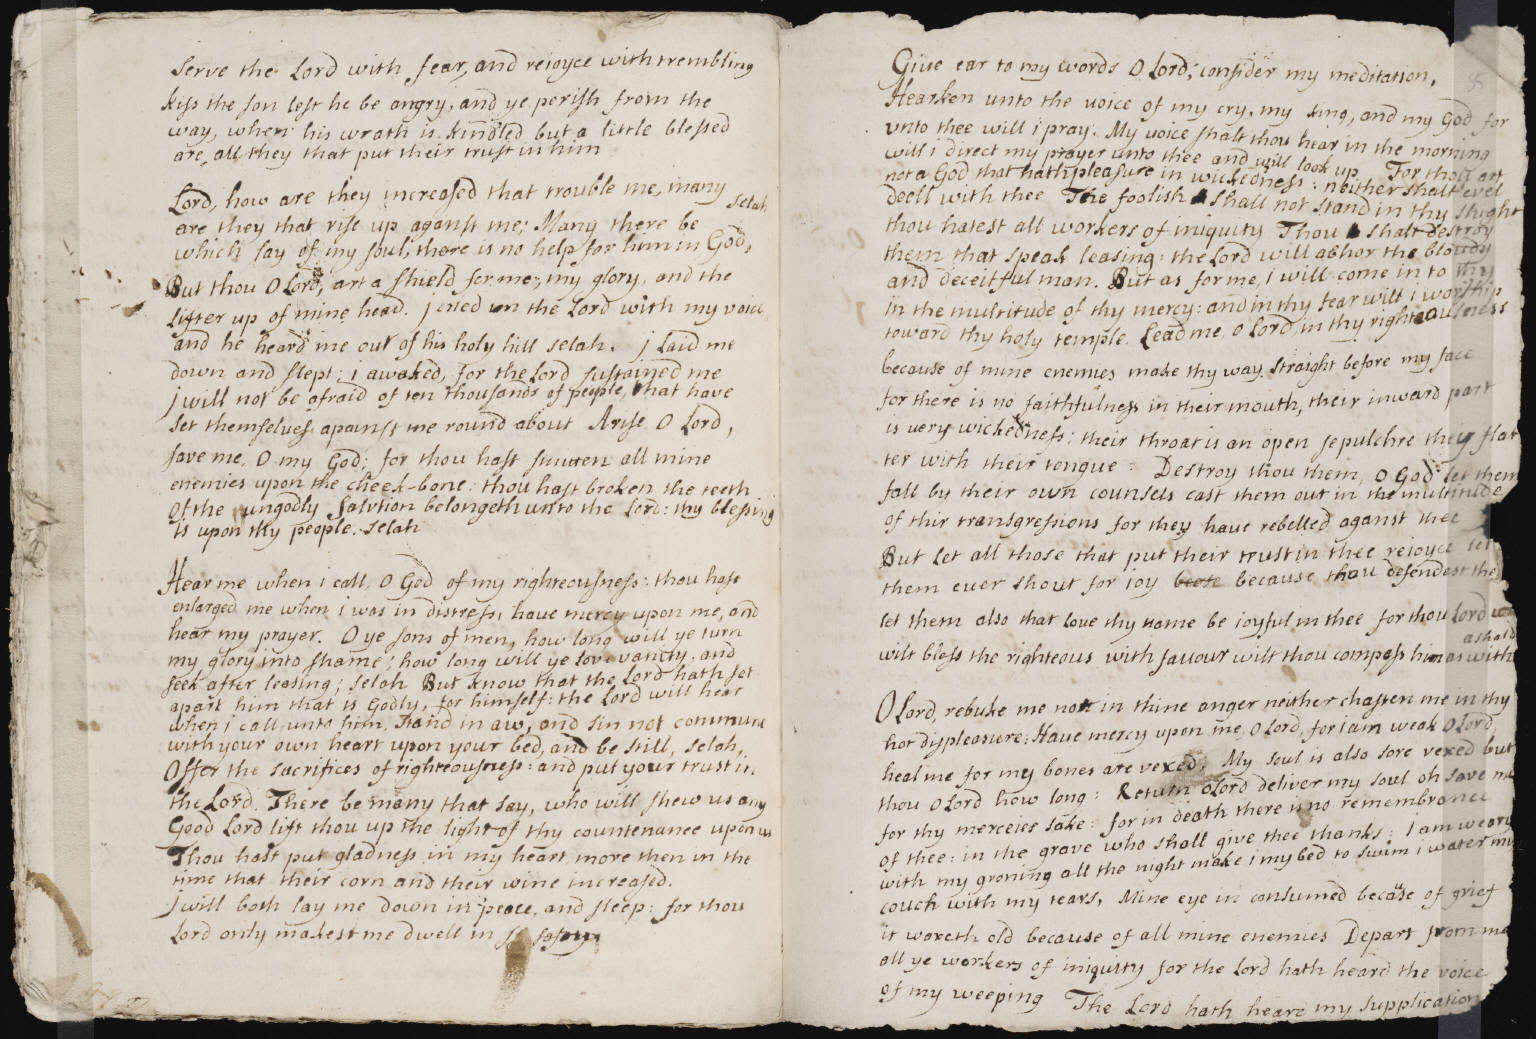 serve the Lord with fear, and reioyce with trembling
kiss the son lest he be angry, and ye perish from the
way, when his wrath is kindled but a little blessed
are, all they that put their trust in him
Lord, how are they increased that trouble me, many
are they that rise up against me; Many there be selah
which say of my soul, there is no help for him in God,
But thou O Lord, art a shield for me; my glory, and the
lifter up of mine head. j cried un the Lord with my voice,
and he heard me out of his holy hill selah. j Laid me
down and slept; i awaked, for the Lord sustained me
j will not be afraid of ten thousands of people, that have
set themselves against me round about Arise O Lord,
save me, O my God; for thou hast smitten all mine
enemies upon the cheek-bone: thou hast broken the teeth
of the ungodly Salvtion belongeth unto the Lord: thy blessing
is upon thy people. selah
Hear me when i call, O God of my righteousness: thou hast
enlarged me when i was in distress, have mercy upon me, and
hear my prayer. O ye sons of men, how long will ye turn
my glory into shame; how long will ye love vanity, and
seek after leasing; selah But know that the Lord hath set
apart him that is Godly, for himself: the Lord will hear
when i call unto him. stand in aw, and sin not commune
with your own heart upon your bed, and be still, selah,
Offer the sacrifices of righteousness: and put your trust in
the Lord. There be many that say, who will shew us any
Good Lord lift thou up the light of thy countenance upon us
Thou hast put gladness in my heart, more then in the
time that their corn and their wine increased.
j will both lay me down in peace, and sleep: for thou
Lord only makest me dwell in safety
Giue ear to my words O Lord, consider my meditation,
Hearken unto the voice of my cry, my king, and my God for
vnto thee will i pray. My voice shalt thou hear in the morning
will i direct my prayer unto thee and will look up For thou art
not a God that hath pleasure in wickedness: neither shall evel
dwell with thee The foolish shall not stand in thy slught
thou hatest all workers of iniquity Thou shalt destroy
them that speak leasing: the Lord will abhor the bloudy
and deceitful man. But as for me, i will come in to thy
in the multitude of thy mercy: and in thy fear will i worship
toward thy holy temple. Lead me, O Lord, in thy righteousness
because of mine enemies make thy way straight before my face
for there is no faithfulness in their mouth, their inward part
is uery wickedness; their throat is an open sepulchre they flat
ter with their tongue: Destroy thou them, O God let them
fall by their own counsels cast them out in the multitude
of thir transgressions for they have rebelled aganst thee
But let all those that put their trust in thee reioyce let
them euer shout for ioy because thou defendest them
let them also that love thy name be ioyful in thee for thou Lord
wilt bless the righteous with fauour wilt thou compass him as with
a shald
O Lord, rebuke me not in thine anger neither chasten me in thy
hot displeasure; Haue mercy upon me, O Lord, for i am weak O Lord
heal me for my bones are vexed. My soul is also sore vexed but
thou O Lord how long: Return O Lord deliver my soul oh save me
for thy merceies sake: for in death there is no remembrance
of thee: in the grave who shall give thee thanks: I am weary
with my groning all the night make i my bed to swim i water my
couch with my tears, Mine eye in consumed becase of grief
it waxeth old because of all mine enemies Depart from me
all ye workers of iniquity for the Lord hath heard the voice
of my weeping The Lord hath heare my supplication